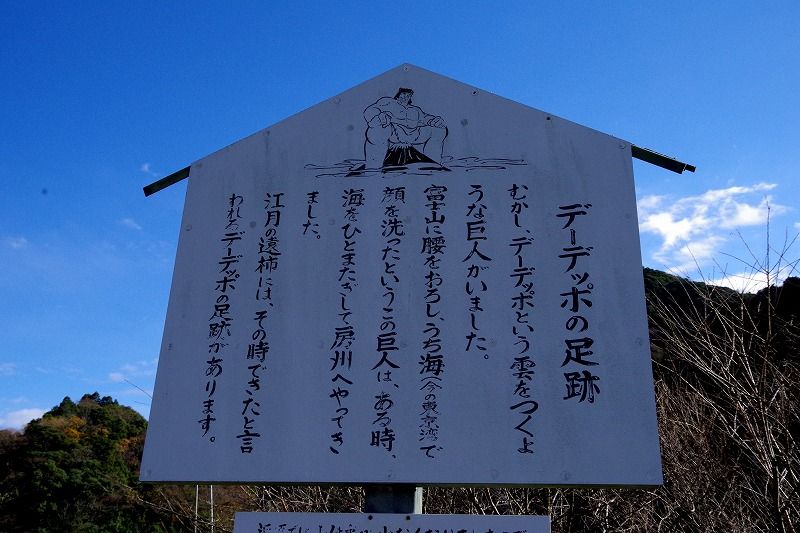 デーデッポの足跡
むかし、デーデッポという雲をつくよ
うな巨人がいました。
富士山に腰をおろし、うち海(今の東京湾)で
顔を洗ったというこの巨人は、ある時、
海をひとまたぎして房州へやってき
ました。
江月の遠柿には、その時できたと言
われるデーデッポの足跡があります。